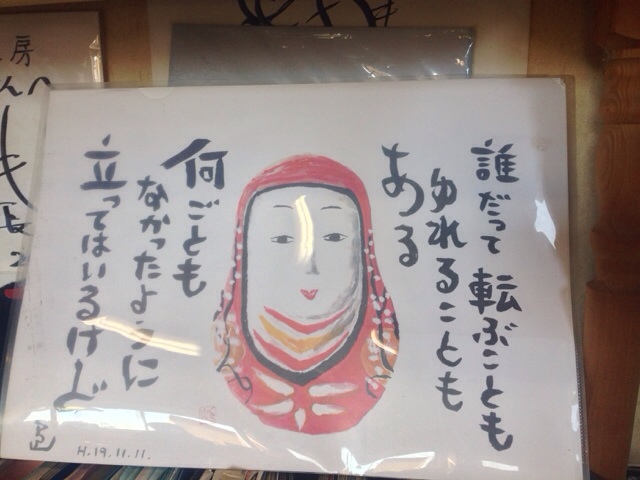 誰だって転ぶことも
ゆれることも
ある
何ごとも
なかったように
立ってはいるけど
H.19.11.11.
房